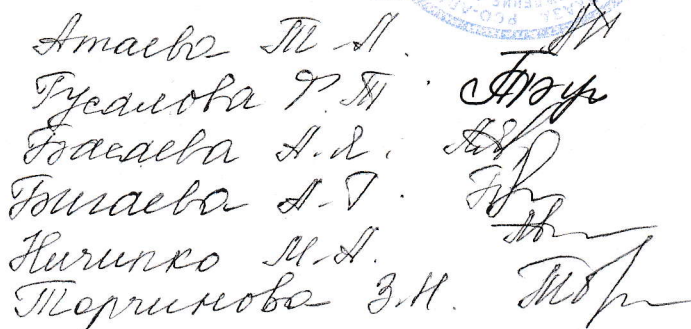 Атаева Т.А.
Гусалова Ф.Т.
Басаева А.Я.
Бигаева А.Г.
Ничипко М.А.
Торчинова З.Н.